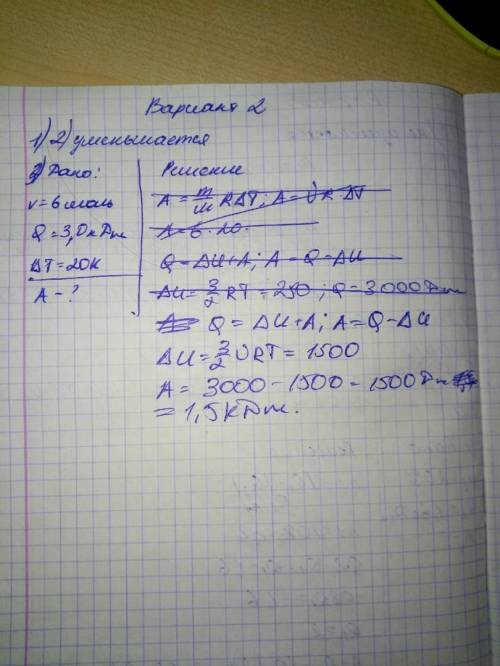 Вариант 2
1) 2) уменьшается
3) Дано:
ν = 6 моль
Q = 3,0 кДж
ΔT = 20К
A - ?
Решение
A = m/M RΔT; A = νR ΔT
A = 6 · 20.
Q = ΔU + A; A = Q - ΔU
ΔU = 3/2 RT = 250; Q = 3000 Дж
Q = ΔU + A; A = Q - ΔU
ΔU = 3/2 νRT = 1500
A = 3000 - 1500 = 1500 Дж
= 1,5 кДж.